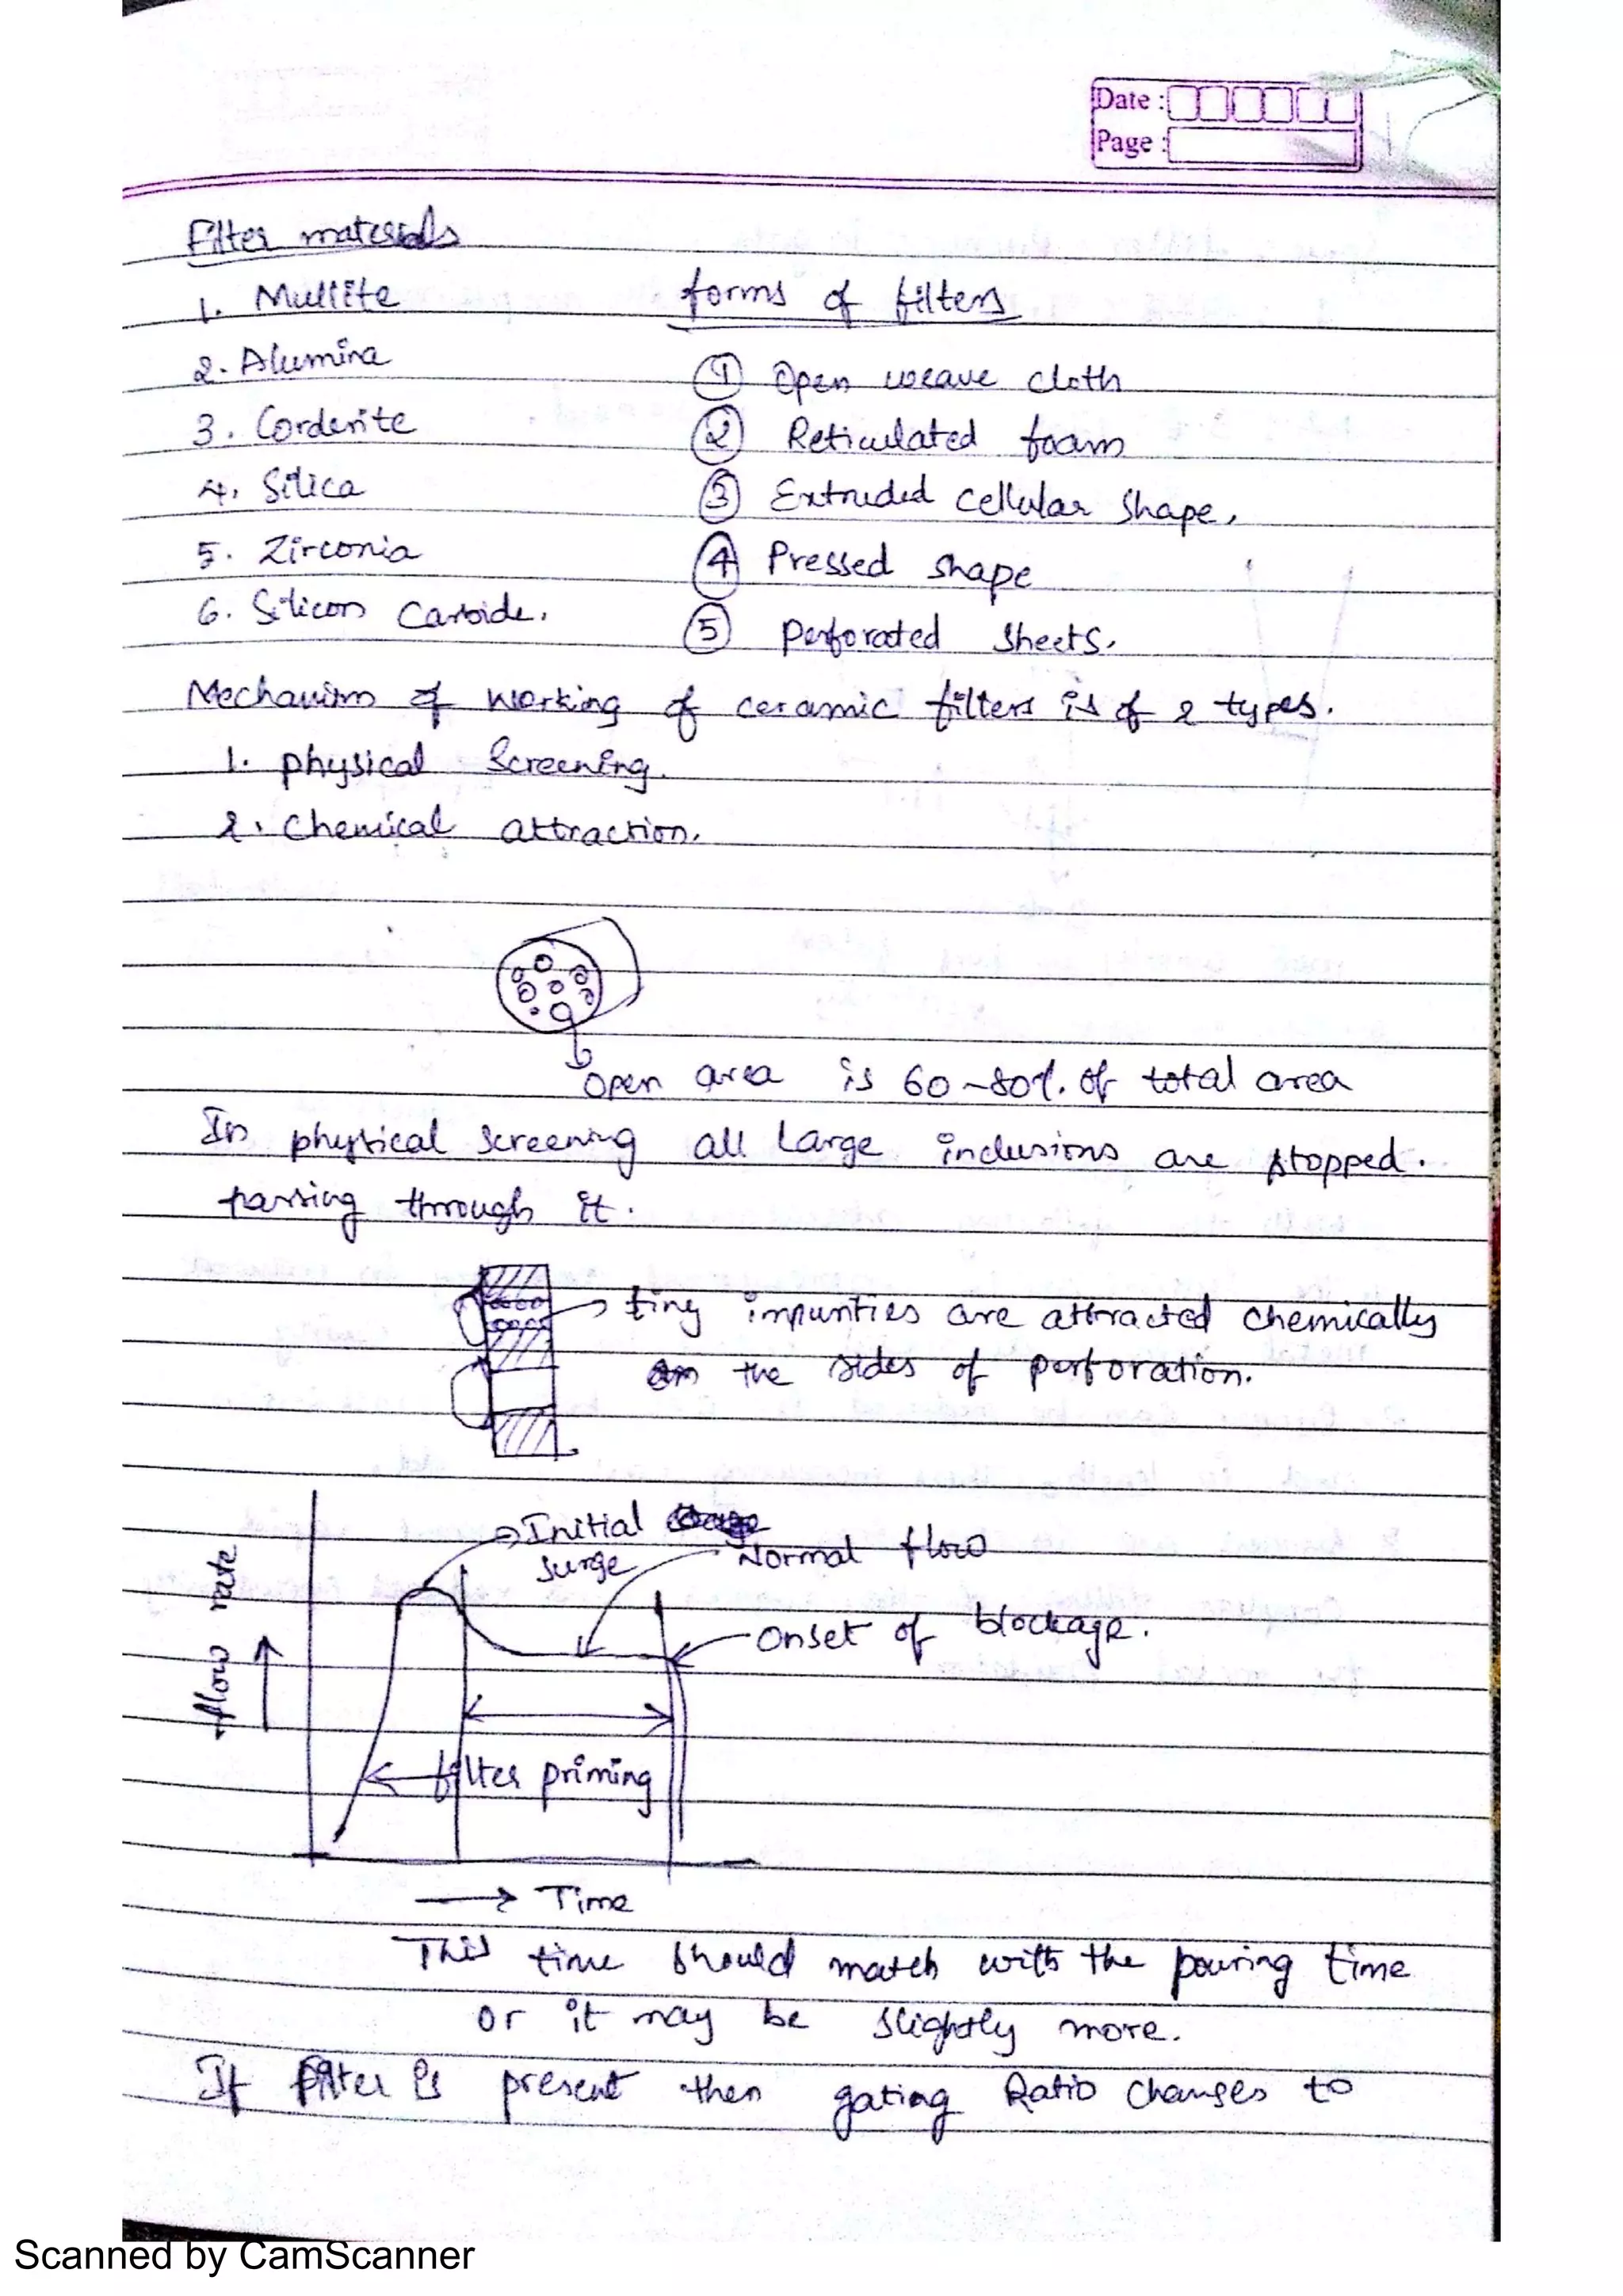 Date :
Page :
Filter materials
1. Mullite
2. Alumina
3. Corderite
4. Silica
5. Zirconia
6. Silicon Carbide.
forms of filters
① Open weave cloth
② Reticulated foam
③ Extruded cellular shape,
④ Pressed shape
⑤ Perforated sheets.
Mechanism of working of ceramic filters is of 2 types.
1. physical Screening.
2. Chemical attraction.
Open area is 60-80%. of total area
In physical screening all large inclusions are stopped.
passing through it.
tiny impurities are attracted chemically
on the sides of perforation.
Initial
surge
Normal flow
Onset of blockage.
flow rate
filter priming
Time
This time should match with the pouring time
or it may be slightly more.
If filter is present then gating Ratio changes to
Scanned by CamScanner